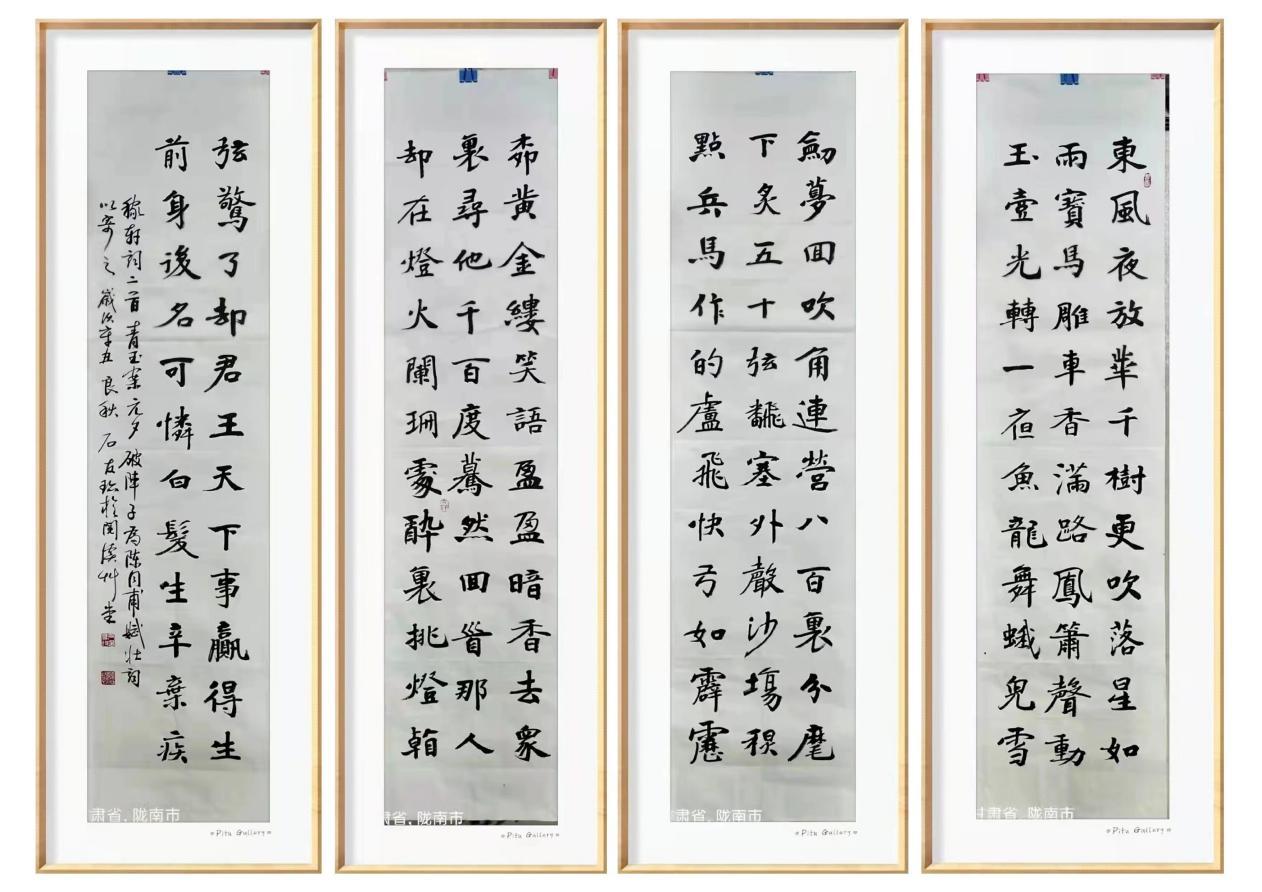 東風夜放華千樹更吹落星如
雨寶馬雕車香滿路鳳簫聲動
玉壺光轉一夜魚龍舞蛾兒雪
肃省,陇南市
Pitu Gallery
桺黄金縷笑語盈盈暗香去衆
裏尋他千百度驀然回首那人
却在燈火闌珊處醉裏挑燈看
肃省,陇南市
Pitu Gallery
劔夢回吹角連營八百裏分麾
下炙五十弦飜塞外聲沙場秋
點兵馬作的盧飛快弓如霹靂
肃省,陇南市
Pitu Gallery
弦驚了却君王天下事贏得生
前身後名可憐白髮生辛棄疾
稼軒詞二首青玉案元夕破陣子為陳同甫賦壯詞
以寄之歲次辛丑良秋石友於草堂
肃省,陇南市
Pitu Gallery